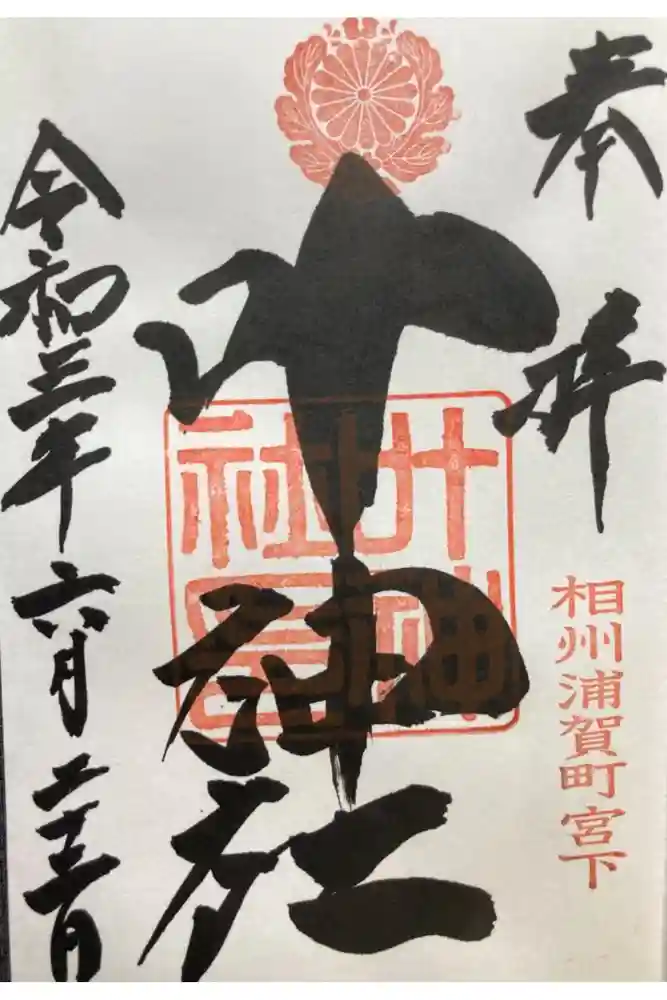 奉拝
相州浦賀町宮下
叶神社
叶神
社印
令和三年六月二十三日